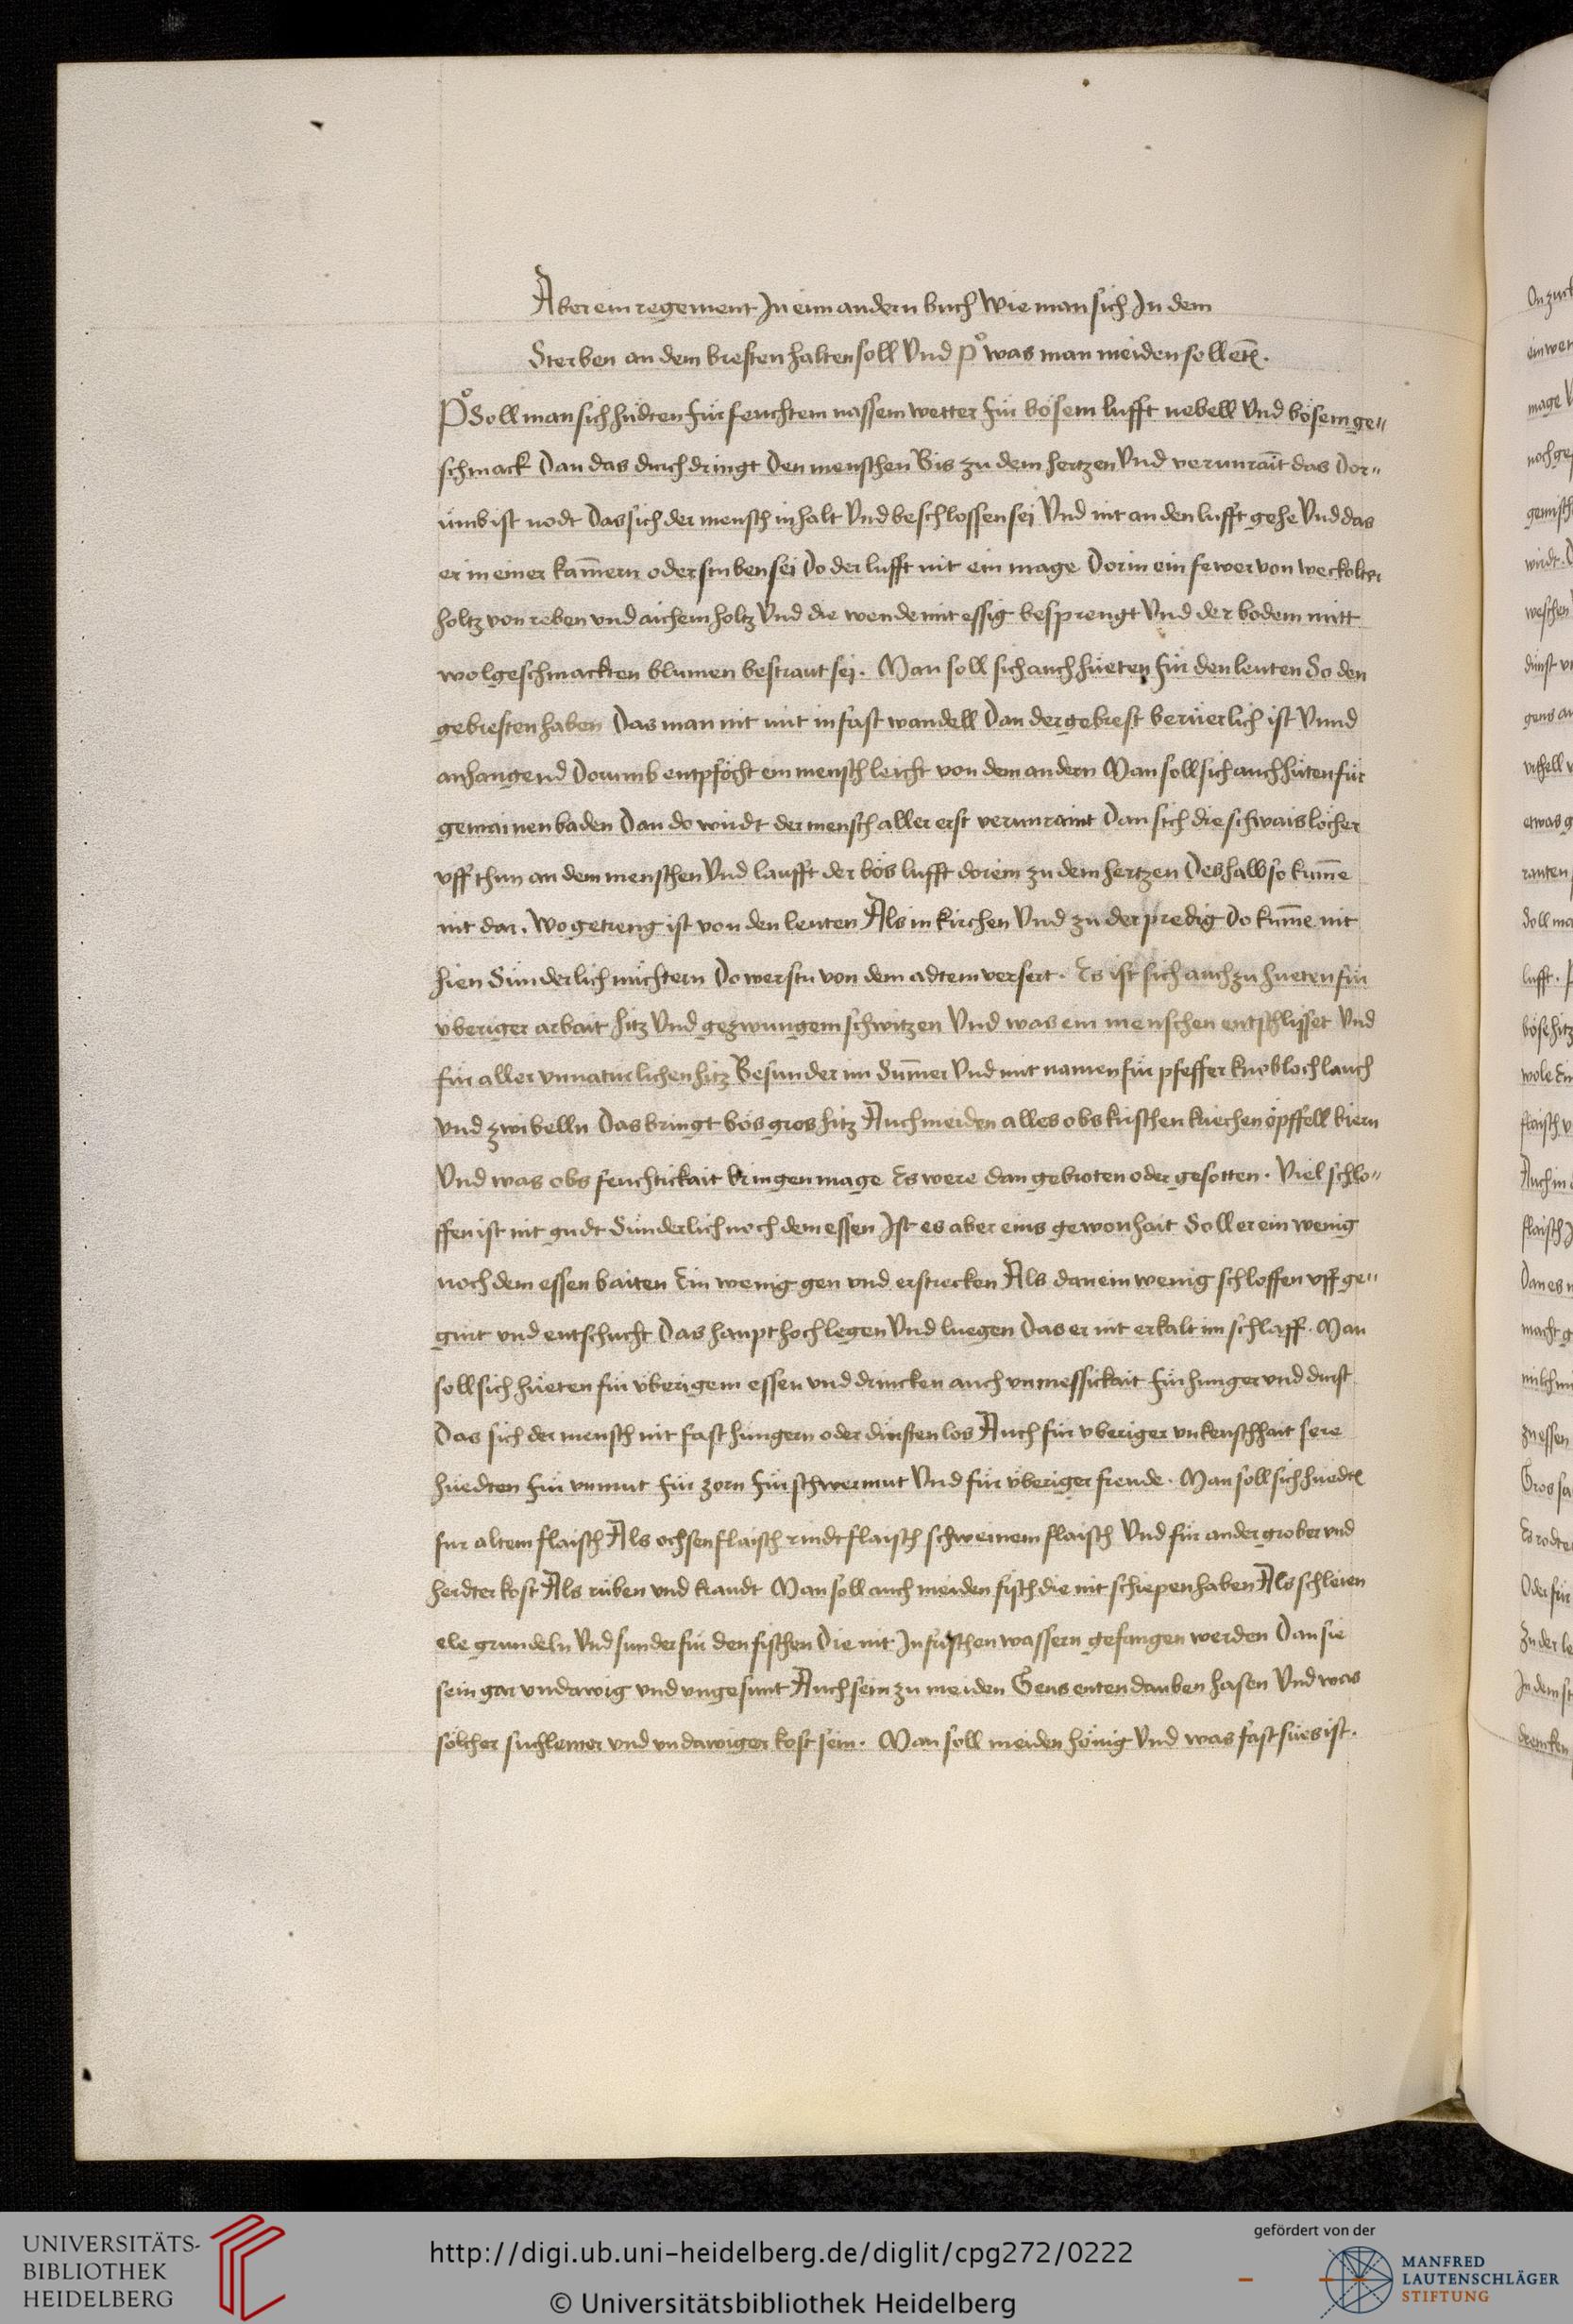 Aber ein regement In eim andern buch wie man sich In dem
Sterben an dem bresten halten soll Vnd po was man meiden soll etc.
Po Soll man sich hüdten für feuchtem nassem wetter für bösem lufft nebell Vnd bösem ge„
schmack Dan das durch dringt Den menschen Bis zu dem hertzen Vnd verunraīt das Dor„
umb ist nodt Das sich der mensch in halt Vnd beschlossen sei Vnd nit an den lufft gehe Vnd das
er in einer kam̄ern oder stuben sei Do der lufft nit ein mage Dorin ein fewer von weckolter
holtz von reben vnd aichem holtz Vnd die wende mit essig besprengt Vnd der bodem mitt
wolgeschmackten blumen bestraut sei. Man soll sich auch hüeten für den leuten So den
gebresten haben Das man nit mit in fast wandell Dan der gebrest berüerlich ist Vnnd
anhangend Dorumb entpföcht ein mensch leicht von dem andern Man soll sich auch hüten für
gemainen baden Dan do würdt der mensch aller erst verunraint Dan sich die schwais löcher
vff thun an dem menschen Vnd laufft der bös lufft dorein zu dem hertzen Deshalb so kum̄e
nit dar. Wo getreng ist von den leuten Als in kirchen Vnd zu der predig Do kum̄e nit
hien Sünderlich nüchtern Do werstu von dem adtem versert. Es ist sich auch zu hueten für
vberiger arbait hitz Vnd gezwungem schwitzen Vnd was ein menschen entschlisset Vnd
für aller vnnatürlichen hitz Besunder im Sum̄er Vnd mit namen für pfeffer knobloch lauch
vnd zwibelln Das bringt bös gros hitz Auch meiden alles obs kirschen kriechen öpffell biern
Vnd was obs feuchtickait bringen mage Es were dan gebroten oder gesotten. Viel schlo„
ffen ist nit gudt Sünderlich noch dem essen Ist es aber eins gewonhait Soll er ein wenig
noch dem essen baiten Ein wenig gen vnd erstrecken Als dan ein wenig schloffen vff ge„
gürt vnd entschucht Das haupt hoch legen Vnd luegen Das er nit erkalt im schlaff. Man
soll sich hüeten für vberigem essen vnd drincken auch vnmessickait für hunger vnd durst
Das sich der mensch nit fast hungern oder dürsten los Auch für vberiger vnkeuschhait sere
hüedten für vnmut für zorn für schwermut Vnd für vberiger freude. Man soll sich hüedten
fur altem flaisch Als ochsen flaisch rindt flaisch schweinem flaisch Vnd für ander grober vnd
herdter kost Als rüben vnd kraudt Man soll auch meiden fisch die nit schiepen haben Als schleien
ele grundeln Vnd sunder für den fischen Die nit In frischen wassern gefangen werden Dan sie
sein gar vndawig vnd vngesunt Auch sein zu meiden Gens enten dauben hasen Vnd was
sölcher vnd vndawiger kost sein. Man soll meiden hönig Vnd was fast sües ist.
UNIVERSITÄTS-
BIBLIOTHEK
HEIDELBERG
http://digi.ub.uni-heidelberg.de/diglit/cpg272/0222
© Universitätsbibliothek Heidelberg
gefördert von der
MANFRED
LAUTENSCHLÄGER
STIFTUNG